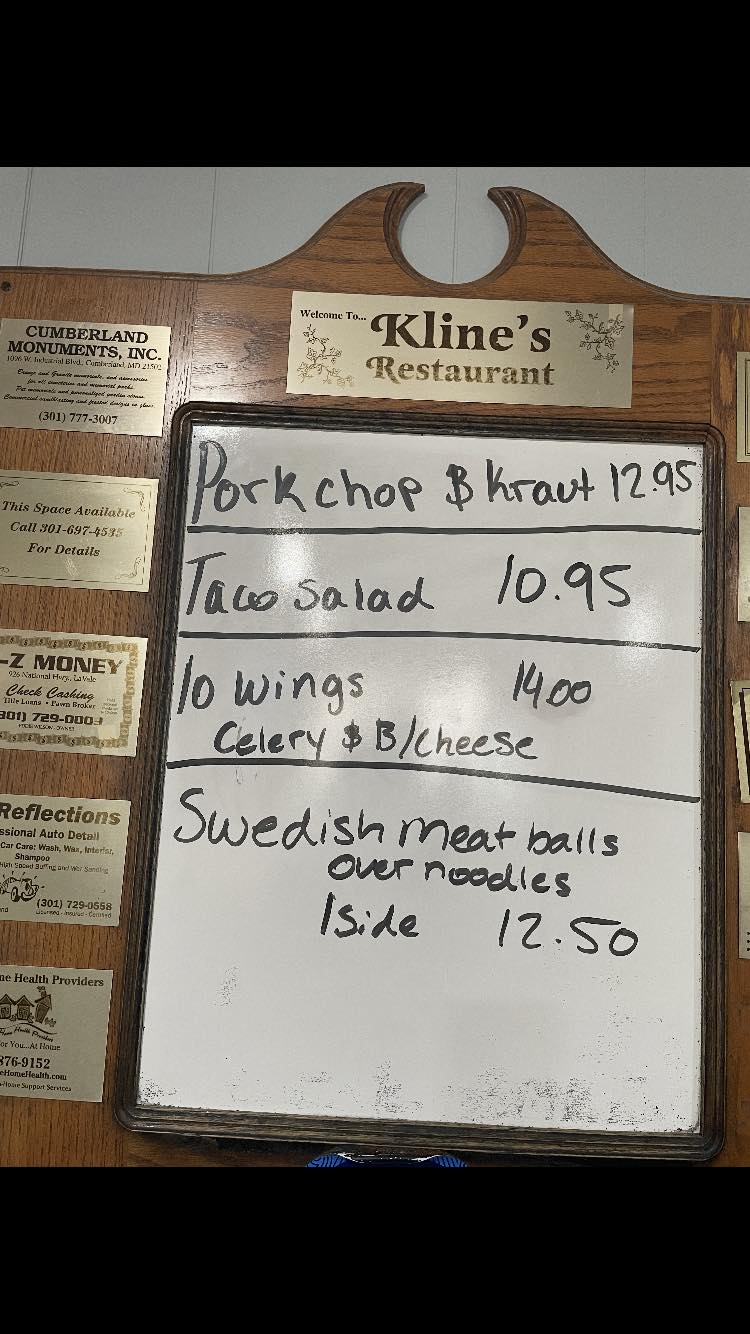 Welcome To...
Kline's
Restaurant
Pork chop & kraut 12.95
Taco salad 10.95
10 wings 14.00
Celery & B/cheese
Swedish meat balls
over noodles
1 side 12.50
CUMBERLAND
MONUMENTS, INC.
1096 W. Industrial Blvd., Cumberland, MD 21502
Bronze and Granite memorials, and accessories
for all cemeteries and memorial parks.
Pet monuments and personalized garden stones.
Commercial sandblasting and frosted designs in glass.
(301) 777-3007
This Space Available
Call 301-697-4535
For Details
-Z MONEY
926 National Hwy., LaVale
Check Cashing
Title Loans • Pawn Broker
301) 729-0003
Reflections
ssional Auto Detail
Car Care: Wash, Wax, Interior,
Shampoo
High Speed Buffing and Wet Sanding
(301) 729-0558
Licensed - Insured - Certified
me Health Providers
For You...At Home
876-9152
eHomeHealth.com
n-Home Support Services